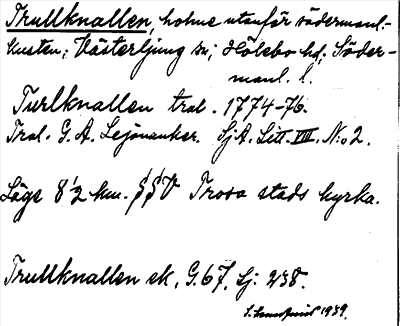 Trullknallen, holme utanför södermanl.-
kusten; Västerljung sn; Hölebo hd, Söder-
manl. l.
Turlknallen tral. 1774-76.
Tral. G. A. Lejonanker. SjA. Litt. VIII. N:o 2.
Läge 8 1/2 km. SSV Trosa stads kyrka.
Trullknallen ek, G. 67, Sj: 238.
1939.